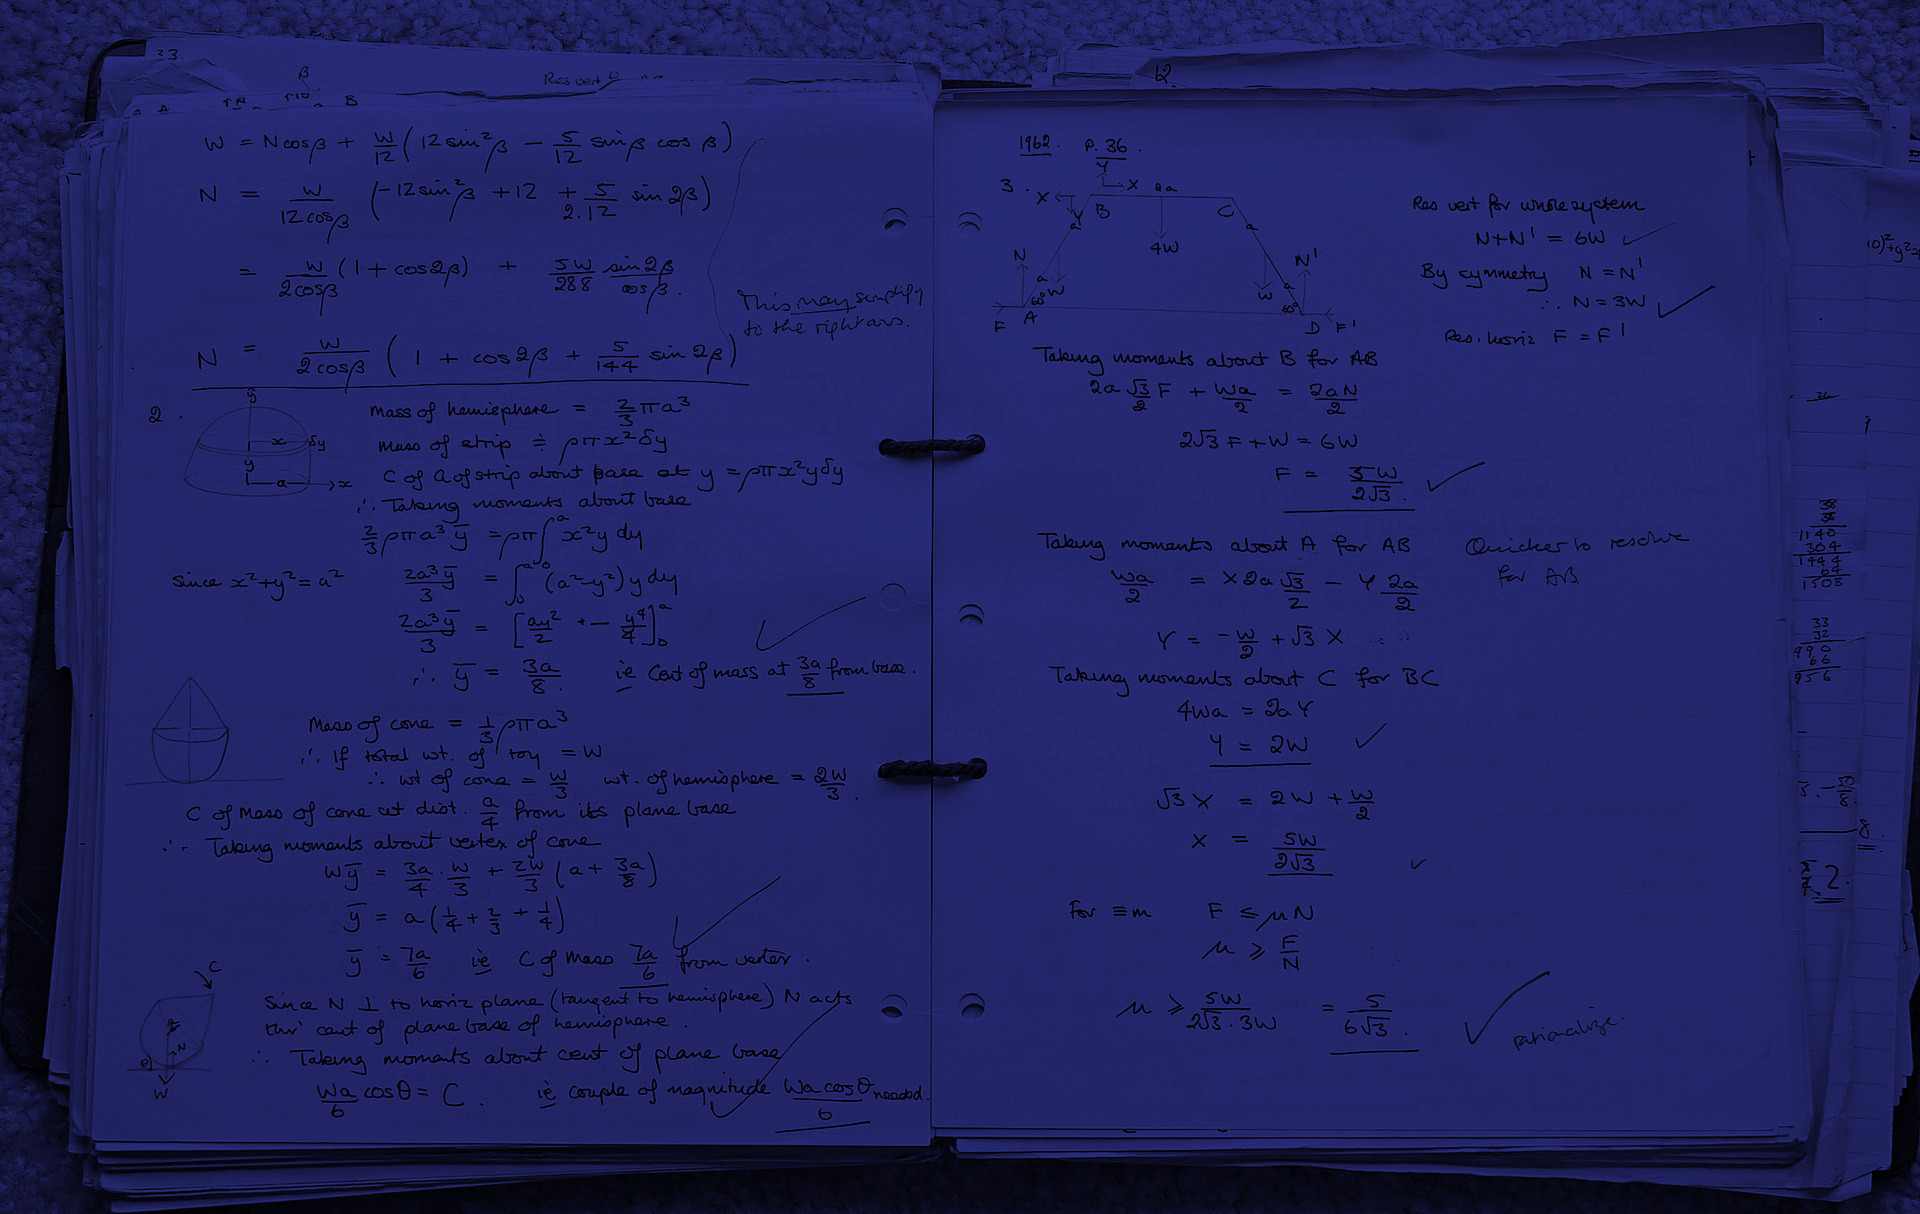 33
β
Res vert
A
B
W = N cosβ + W/12 (12 sin²β − 5/12 sinβ cosβ)
N = W/12cosβ (−12sin²β + 12 + 5/2.12 sin 2β)
= W/2cosβ (1 + cos2β) + 5W/288 sin2β/cosβ.
This may simplify
to the right ans.
N = W/2cosβ (1 + cos2β + 5/144 sin 2β)
2.
Mass of hemisphere = 2/3 πa³
Mass of strip ≑ ρπx²δy
C of G of strip about base at y = ρπx²yδy
∴ Taking moments about base
y
x
δy
y
a
x
2/3 ρπa³ȳ = ρπ∫₀ᵃ x²y dy
since x²+y² = a² 2a³ȳ/3 = ∫₀ᵃ (a²−y²) y dy
2a³ȳ/3 = [ay²/2 − y⁴/4]₀ᵃ
∴ ȳ = 3a/8. ie Cent of mass at 3a/8 from base.
Mass of cone = 1/3 ρπa³
∴ If total wt. of toy = W
∴ wt of cone = W/3 wt. of hemisphere = 2W/3.
C of Mass of cone at dist. a/4 from its plane base
∴ Taking moments about vertex of cone
Wȳ = 3a/4 . W/3 + 2W/3 (a + 3a/8)
ȳ = a(1/4 + 2/3 + 1/4)
ȳ = 7a/6 ie C of Mass 7a/6 from vertex.
C
N
W
Since N ⊥ to horiz plane (tangent to hemisphere) N acts
thr' cent of plane base of hemisphere.
∴ Taking moments about cent of plane base
Wa/6 cosθ = C. ie couple of magnitude Wa cosθ/6 needed.
12
1962. P. 36.
3.
Y
X
X
2a
B
C
Y
a
a
4W
N
N'
a
W
W
a
60°
60°
F
A
D
F'
Res vert for whole system
N+N' = 6W
By symmetry N = N'
∴ N = 3W
Res. horiz F = F'
Taking moments about B for AB
2a √3/2 F + Wa/2 = 2aN/2
2√3 F + W = 6W
F = 5W/2√3.
Taking moments about A for AB
Quicker to resolve
for AB
Wa/2 = X 2a √3/2 − Y 2a/2
Y = −W/2 + √3 X
Taking moments about C for BC
4Wa = 2aY
Y = 2W
√3 X = 2W + W/2
X = 5W/2√3
for ≡m F ≤ μN
μ ≥ F/N
μ ≥ 5W/2√3 . 3W = 5/6√3.
rationalize.
38
38
1140
304
1444
64
1508
33
32
990
66
956
8.
2.